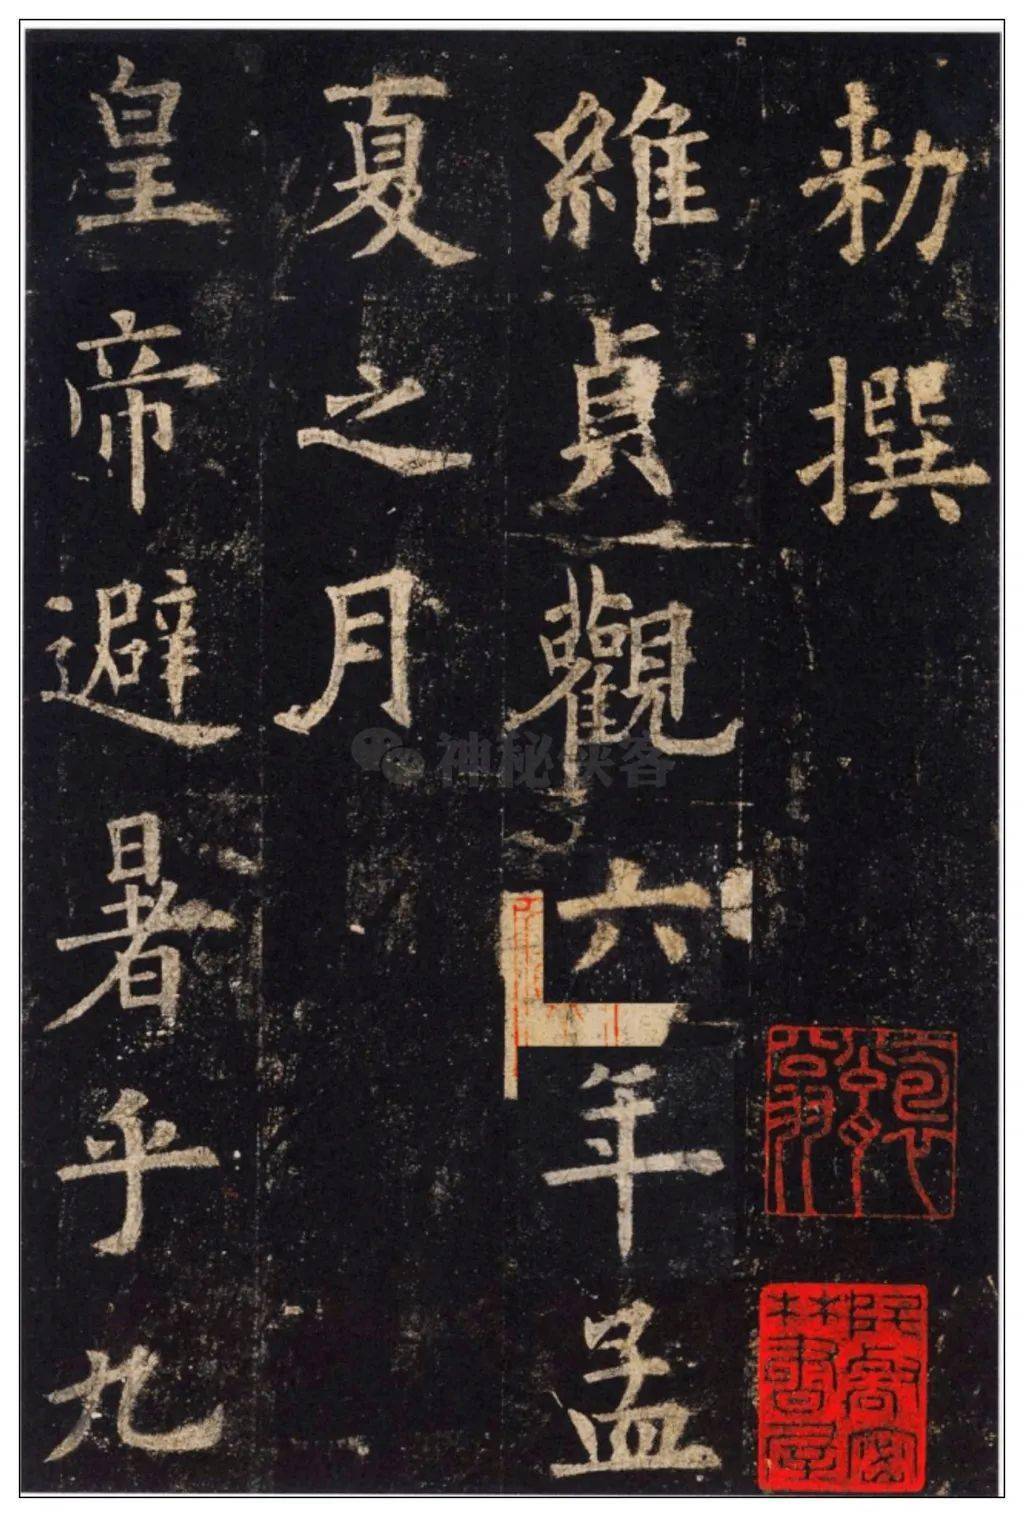 勑撰
維貞觀六年孟
夏之月
皇帝避暑乎九
神秘侠客